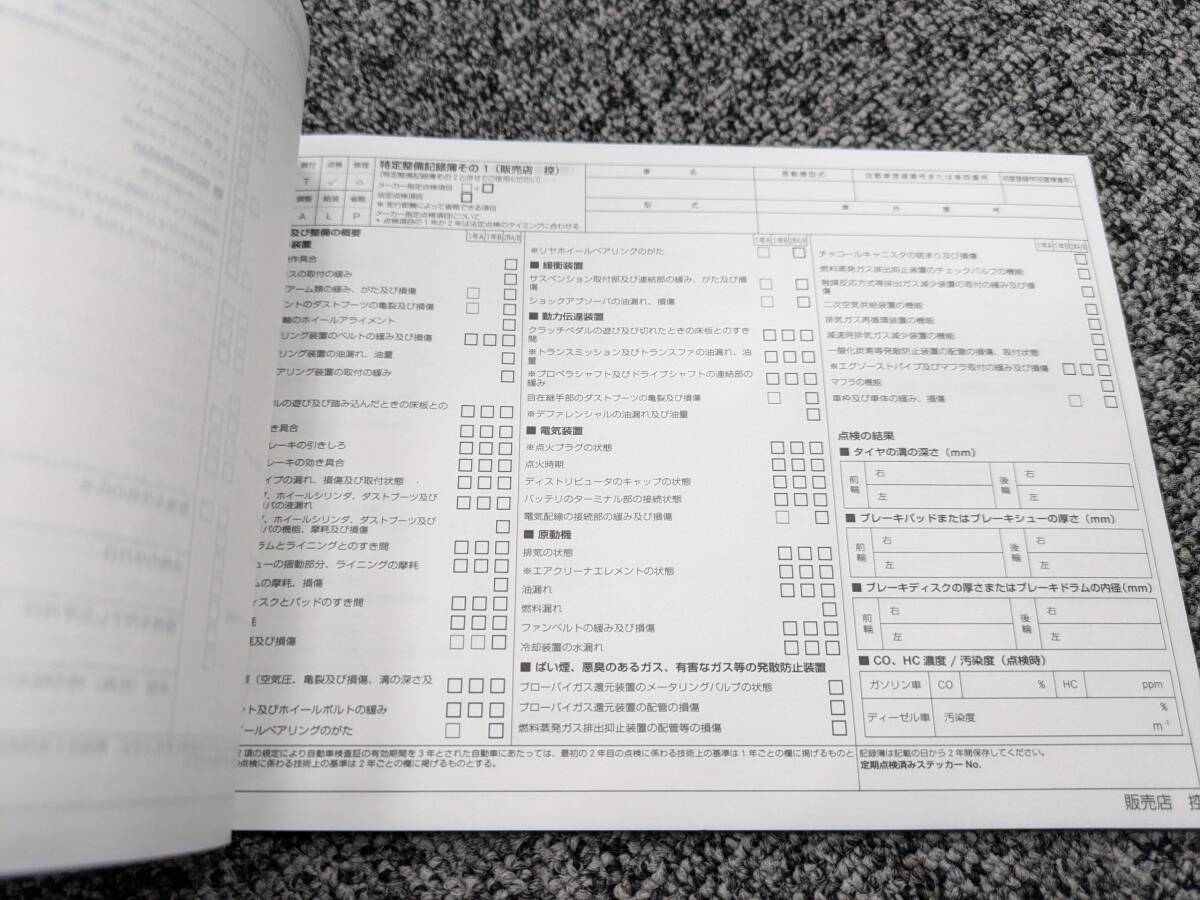 締付 点検 修理
T ✓ △
調整 給油 省略
A L P
特定整備記録簿その1(販売店 控)
(特定整備記録簿その2と併せてご使用ください)
メーカー指定点検項目 □+□
法定点検項目 □
※ 走行距離によって省略できる項目
メーカー指定点検項目について
* 点検項目の1年か2年は法定点検のタイミングに合わせる
車 名
原動機型式
自動車登録番号または車両番号
初度登録年(初度検査年)
型 式
車 台 番 号
及び整備の概要
1年A 1年B 2年A/B
装置
作具合
スの取付の緩み
アーム類の緩み、がた及び損傷
ントのダストブーツの亀裂及び損傷
輪のホイールアライメント
リング装置のベルトの緩み及び損傷
リング装置の油漏れ、油量
アリング装置の取付の緩み
ルの遊び及び踏み込んだときの床板との
き具合
レーキの引きしろ
レーキの効き具合
イプの漏れ、損傷及び取付状態
、ホイールシリンダ、ダストブーツ及び
パの液漏れ
、ホイールシリンダ、ダストブーツ及び
パの機能、摩耗及び損傷
ラムとライニングとのすき間
ューの摺動部分、ライニングの摩耗
ムの摩耗、損傷
ィスクとパッドのすき間
耗
耗及び損傷
(空気圧、亀裂及び損傷、溝の深さ及
ット及びホイールボルトの緩み
ールベアリングのがた
1年A 1年B 2年A/B
※リヤホイールベアリングのがた
■ 緩衝装置
サスペンション取付部及び連結部の緩み、がた及び損
傷
ショックアブソーバの油漏れ、損傷
■ 動力伝達装置
クラッチペダルの遊び及び切れたときの床板とのすき
間
※トランスミッション及びトランスファの油漏れ、油
量
※プロペラシャフト及びドライブシャフトの連結部の
緩み
自在継手部のダストブーツの亀裂及び損傷
※デファレンシャルの油漏れ及び油量
■ 電気装置
※点火プラグの状態
点火時期
ディストリビュータのキャップの状態
バッテリのターミナル部の接続状態
電気配線の接続部の緩み及び損傷
■ 原動機
排気の状態
※エアクリーナエレメントの状態
油漏れ
燃料漏れ
ファンベルトの緩み及び損傷
冷却装置の水漏れ
■ ばい煙、悪臭のあるガス、有害なガス等の発散防止装置
ブローバイガス還元装置のメータリングバルブの状態
ブローバイガス還元装置の配管の損傷
燃料蒸発ガス排出抑止装置の配管等の損傷
1年A 1年B 2年A/B
チャコールキャニスタの詰まり及び損傷
燃料蒸発ガス排出抑止装置のチェックバルブの機能
触媒反応方式等排出ガス減少装置の取付の緩み及び損
傷
二次空気供給装置の機能
排気ガス再循環装置の機能
減速時排気ガス減少装置の機能
一酸化炭素等発散防止装置の配管の損傷、取付状態
※エグゾーストパイプ及びマフラ取付の緩み及び損傷
マフラの機能
車枠及び車体の緩み、損傷
点検の結果
■ タイヤの溝の深さ(mm)
前輪 右 後輪 右
左 左
■ ブレーキパッドまたはブレーキシューの厚さ(mm)
前輪 右 後輪 右
左 左
■ ブレーキディスクの厚さまたはブレーキドラムの内径(mm)
前輪 右 後輪 右
左 左
■ CO、HC 濃度 / 汚染度(点検時)
ガソリン車 CO % HC ppm
ディーゼル車 汚染度 %
m⁻¹
2項の規定により自動車検査証の有効期間を3年とされた自動車にあたっては、最初の2年目の点検に係わる技術上の基準は1年ごとの欄に掲げるものと
の点検に係わる技術上の基準は2年ごとの欄に掲げるものとする。
記録簿は記載の日から2年間保存してください。
定期点検済みステッカー No.
販売店 控